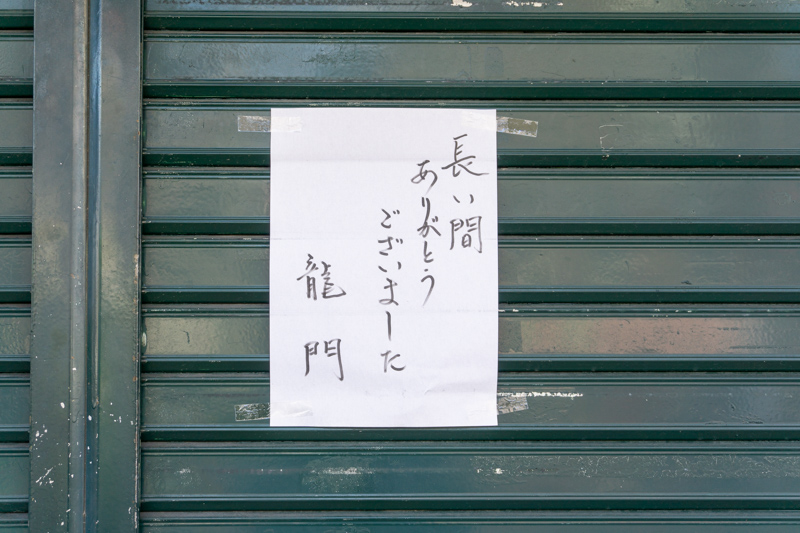 長い間
ありがとう
ございました
龍門